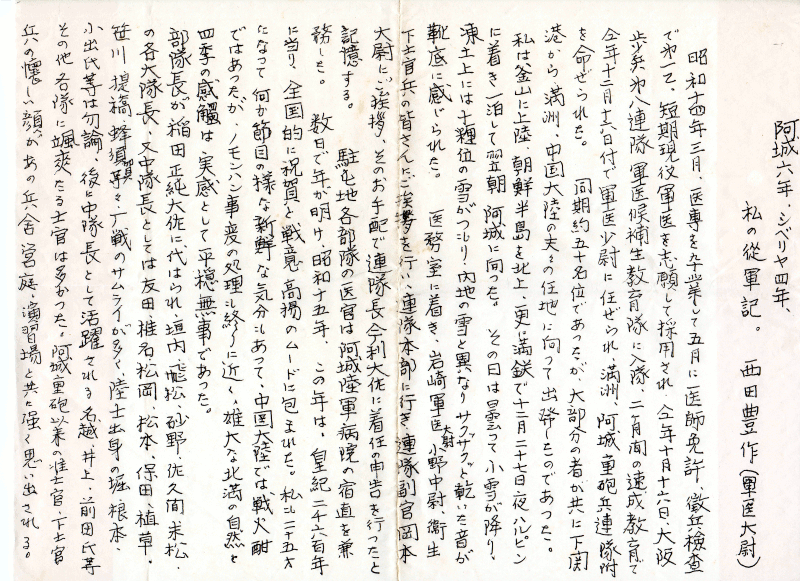 阿城六年、シベリヤ四年、
私の従軍記。 西田豊作(軍医大尉)
昭和十四年三月、医専を卒業して五月に医師免許、徴兵検査
で第一乙、短期現役軍医を志願して採用され、仝年十月十六日、大阪
歩兵第八連隊軍医候補生教育隊に入隊、二ヶ月間の速成教育で
今年十二月十六日付で軍医少尉に任ぜられ、満洲、阿城重砲兵連隊附
を命ぜられた。 同期約五十名位であったが、大部分の者が共に下関
港から満洲、中国大陸の夫々の任地に向って出発したのであった。
私は釜山に上陸、朝鮮半島を北上、更に満鉄で十二月二十七日夜ハルピン
に着き一泊して翌朝阿城に向った。 その日は曇って小雪が降り、
凍土上には十糎位の雪がつもり、内地の雪と異なりサクサクと乾いた音が
靴底に感じられた。 医務室に着き、岩崎軍医大尉、小野中尉、衛生
下士官兵の皆さんにご挨拶を行い、連隊本部に行き、連隊副官岡本
大尉にご挨拶、そのお手配で連隊長今利大佐に着任の申告を行ったと
記憶する。 駐屯地各部隊の医官は阿城陸軍病院の宿直を兼
務した。 数日で年が明け、昭和十五年、この年は、皇紀二千六百年
に当り、全国的に祝賀と戦意高揚のムードに包まれた。私も二十五才
になって何か節目の様な新鮮な気分もあって、中国大陸では戦火酣
ではあったが、ノモンハン事変の処理も終りに近く、雄大な北満の自然と
四季の感触は、実感として平穏無事であった。
部隊長が稲田正純大佐に代はられ、垣内、飛松、砂野、佐久間、米松、
の各大隊長、又中隊長としては友田、椎名、松岡、松本、保田、植草、
笹川、提橋、蜂須賀等々、歴戦のサムライが多く、陸士出身の堀、根本、
小出氏等は勿論、後に中隊長として活躍される名越、井上、前田氏等
その他各隊に颯爽たる士官は多かった。阿城重砲以来の准士官、下士官
兵の懐しい顔があの兵舎、営庭、演習場と共に強く思い出される。